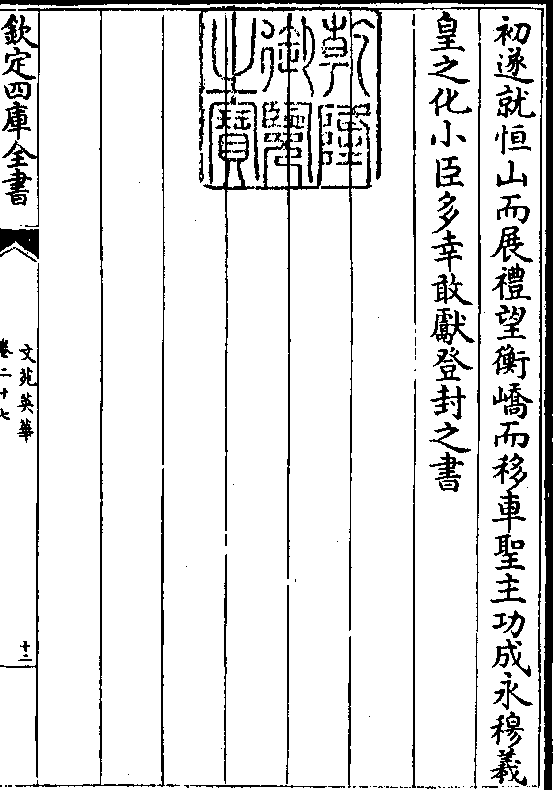 初遂就恒山而展禮望衡嶠而移車聖主功成永穆羲
皇之化小臣多幸敢獻登封之書
乾隆
御覽
之寶
欽定四庫全書
文苑英華
卷二十七
十二